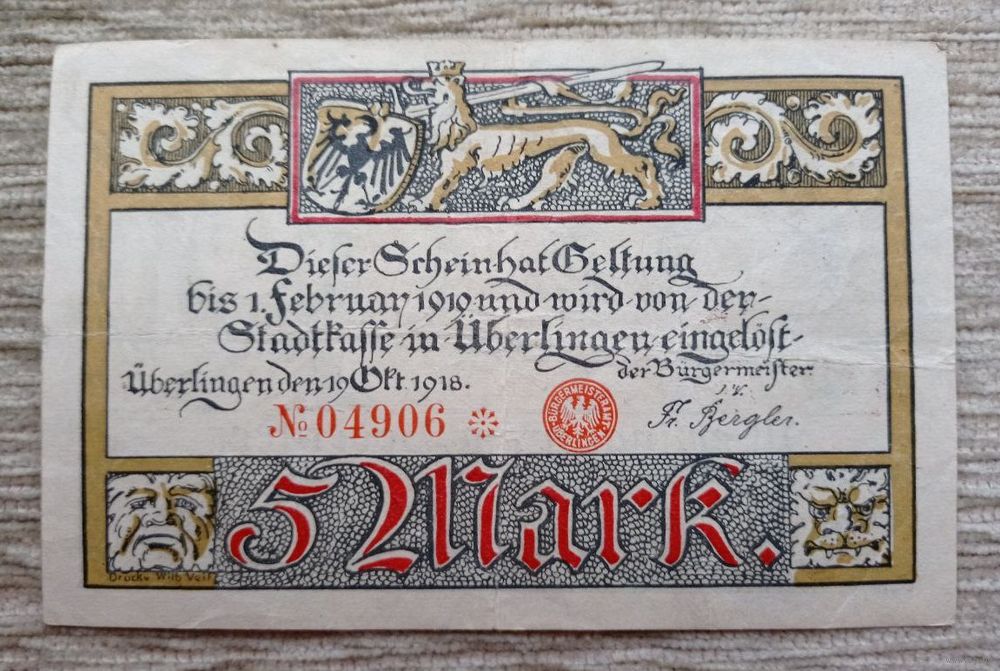 Dieser Schein hat Geltung
bis 1. Februar 1919 und wird von der
Stadtkasse in Überlingen eingelöst.
Überlingen den 19 Okt 1918.
der Bürgermeister
i.V.
№ 04906
BÜRGERMEISTERAMT ÜBERLINGEN
Fr. Bergler.
5 Mark.
Druck v Wilh